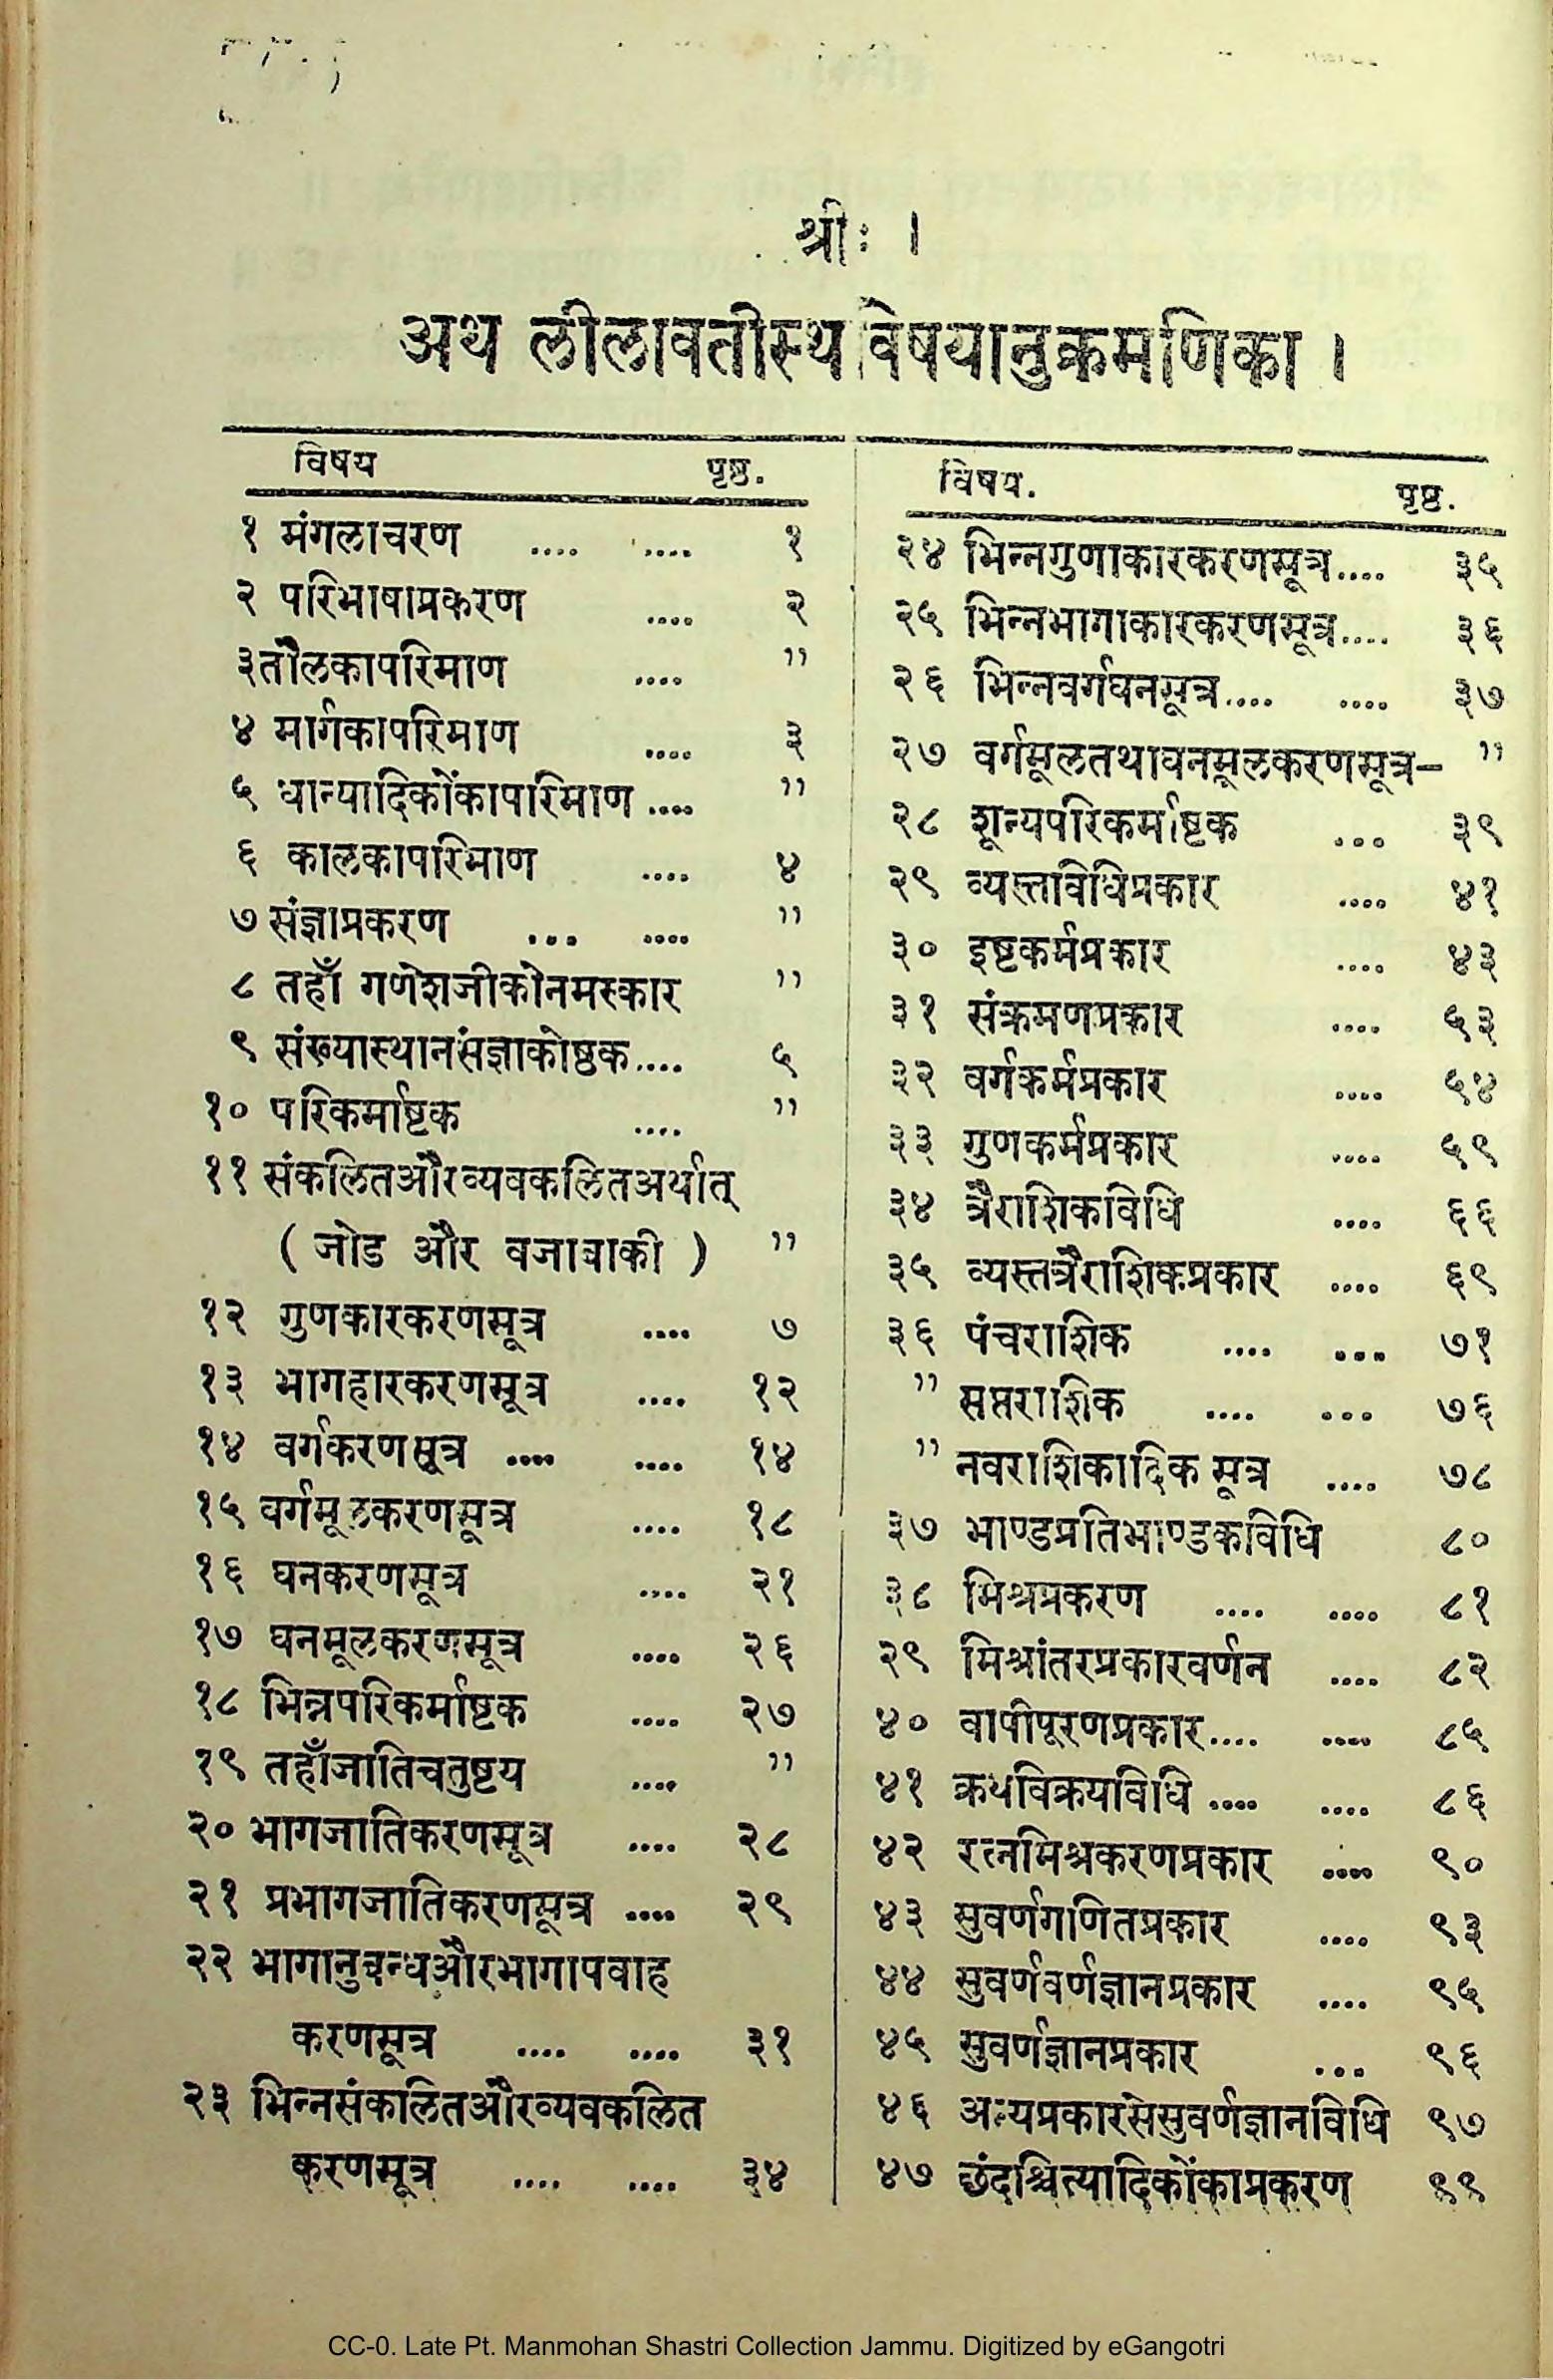 श्रीः ।
अथ लीलावतीस्थविषयानुक्रमणिका ।
विषय पृष्ठ.
१ मंगलाचरण .... .... १
२ परिभाषाप्रकरण .... २
३तौलकापरिमाण .... ”
४ मार्गकापरिमाण .... ३
५ धान्यादिकोंकापरिमाण .... ”
६ कालकापरिमाण .... ४
७ संज्ञाप्रकरण ... .... ”
८ तहाँ गणेशजीकोनमस्कार ”
९ संख्यास्थानसंज्ञाकोष्ठक.... ५
१० परिकर्माष्टक .... ”
११ संकलितऔरव्यवकलितअर्थात्
( जोड और वजाबाकी ) ”
१२ गुणकारकरणसूत्र .... ७
१३ भागहारकरणसूत्र .... १२
१४ वर्गकरणसूत्र .... .... १४
१५ वर्गमूलकरणसूत्र .... १८
१६ घनकरणसूत्र .... २१
१७ घनमूलकरणसूत्र .... २६
१८ भिन्नपरिकर्माष्टक .... २७
१९ तहाँजातिचतुष्टय .... ”
२० भागजातिकरणसूत्र .... २८
२१ प्रभागजातिकरणसूत्र .... २९
२२ भागानुबन्धऔरभागापवाह
करणसूत्र .... .... ३१
२३ भिन्नसंकलितऔरव्यवकलित
करणसूत्र .... .... ३४
विषय. पृष्ठ.
२४ भिन्नगुणाकारकरणसूत्र.... ३५
२५ भिन्नभागाकारकरणसूत्र.... ३६
२६ भिन्नवर्गघनसूत्र.... .... ३७
२७ वर्गमूलतथाघनमूलकरणसूत्र– ”
२८ शून्यपरिकर्माष्टक ... ३९
२९ व्यस्तविधिप्रकार .... ४१
३० इष्टकर्मप्रकार .... ४३
३१ संक्रमणप्रकार .... ५३
३२ वर्गकर्मप्रकार .... ५४
३३ गुणकर्मप्रकार .... ५९
३४ त्रैराशिकविधि .... ६६
३५ व्यस्तत्रैराशिकप्रकार .... ६९
३६ पंचराशिक .... ... ७१
” सप्तराशिक .... ... ७६
” नवराशिकादिक सूत्र .... ७८
३७ भाण्डप्रतिभाण्डकविधि ८०
३८ मिश्रप्रकरण .... .... ८१
२९ मिश्रांतरप्रकारवर्णन .... ८२
४० वापीपूरणप्रकार.... .... ८५
४१ क्रयविक्रयविधि .... .... ८६
४२ रत्नमिश्रकरणप्रकार .... ९०
४३ सुवर्णगणितप्रकार .... ९३
४४ सुवर्णवर्णज्ञानप्रकार .... ९५
४५ सुवर्णज्ञानप्रकार ... ९६
४६ अन्यप्रकारसेसुवर्णज्ञानविधि ९७
४७ छंदश्चित्यादिकोंकाप्रकरण ९९
CC-0. Late Pt. Manmohan Shastri Collection Jammu. Digitized by eGangotri